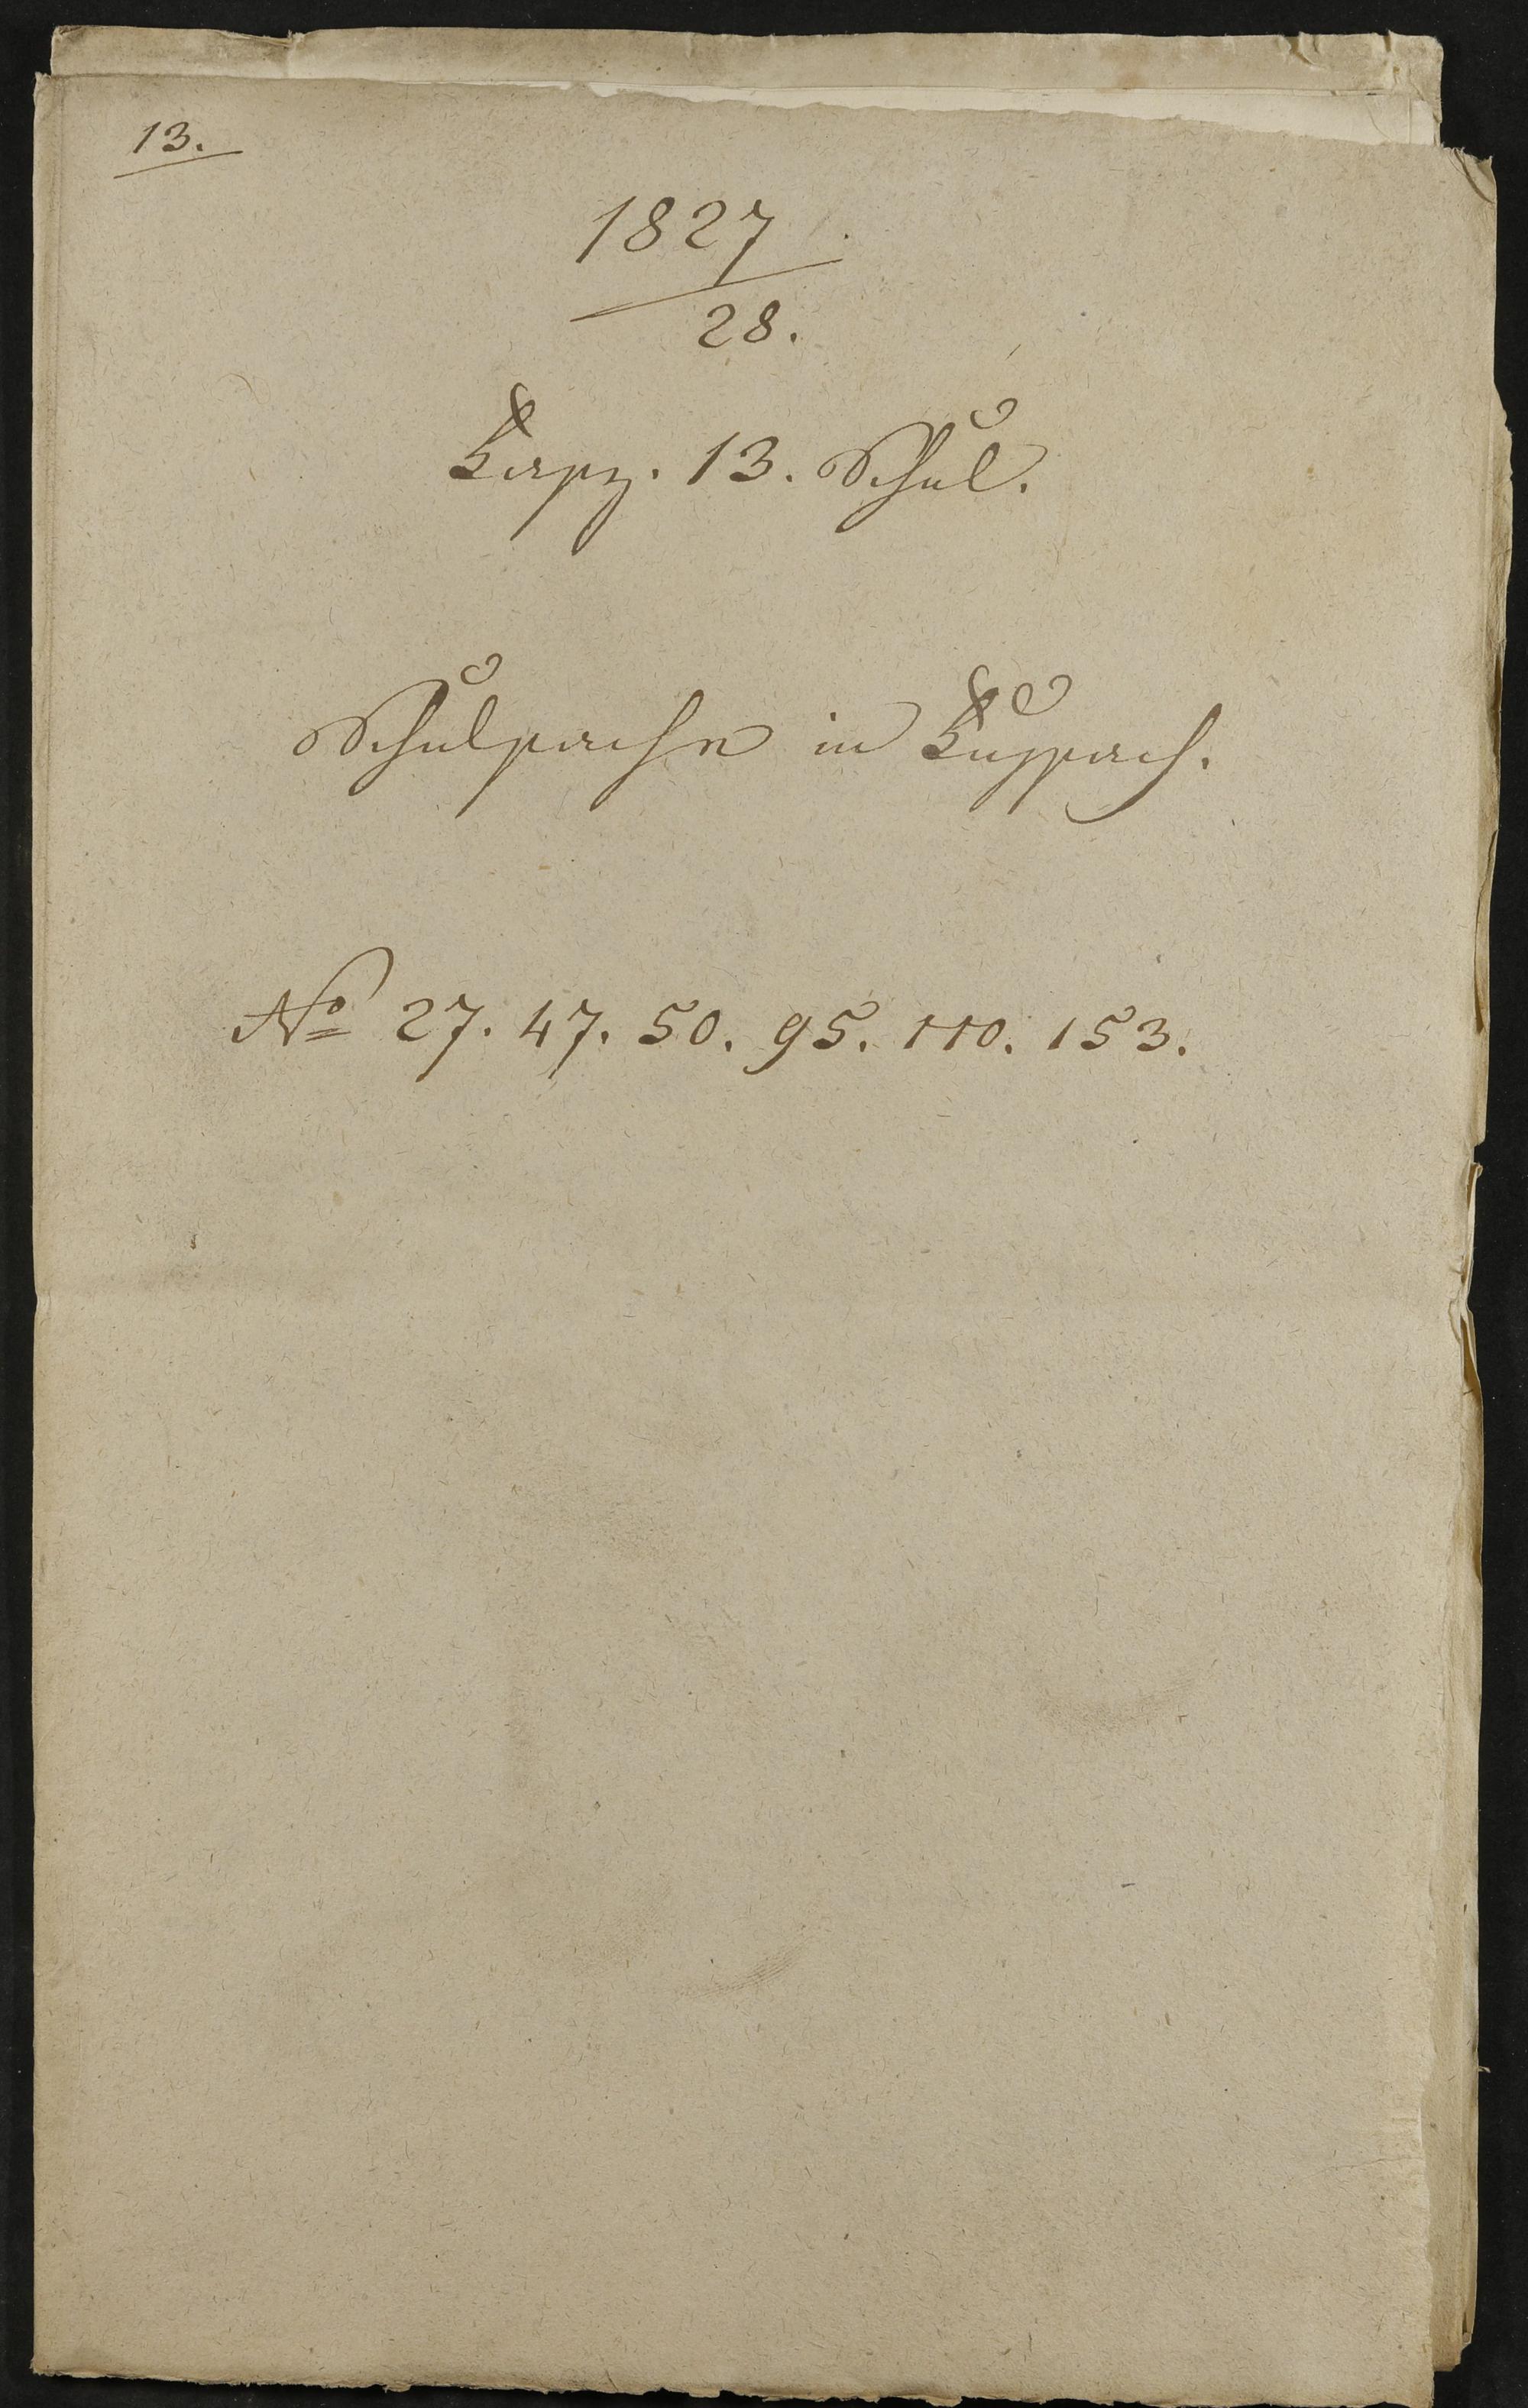 13.
1827
28.
Fasz. 13. Schul.
Schulsache in
No 27. 47. 50. 95. 110. 153.